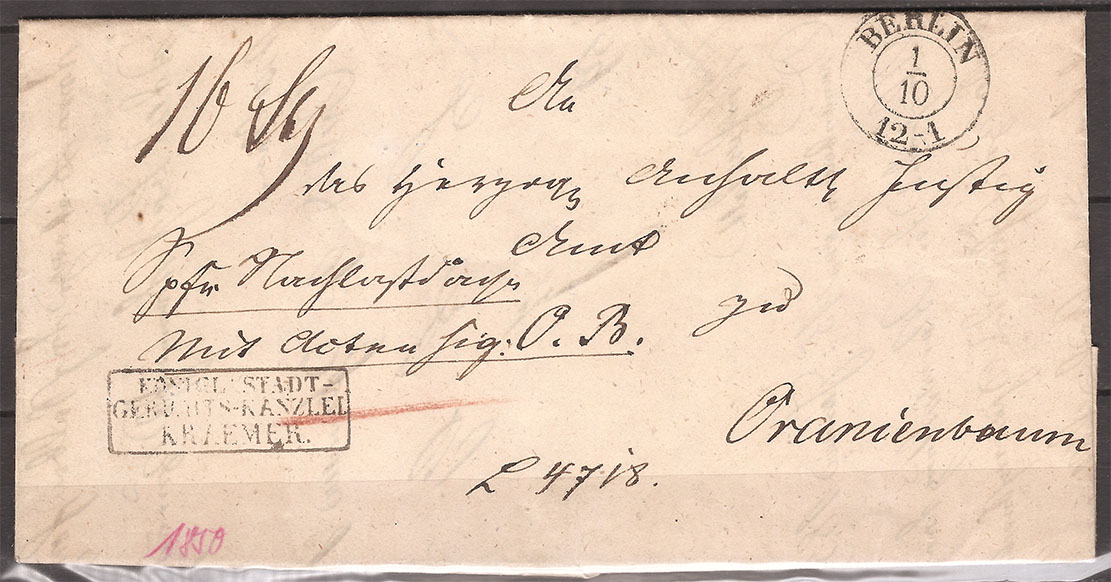 BERLIN
1/10
12-1
16 Sg
An
das Herzogl. Anhalt. Justiz
Amt
Nachlaßsache
mit Acten sig: O. B.
zu
KÖNIGL. STADT-
GERICHTS-KANZLEI
KRAEMER.
Oranienbaum
L 4718.
1850